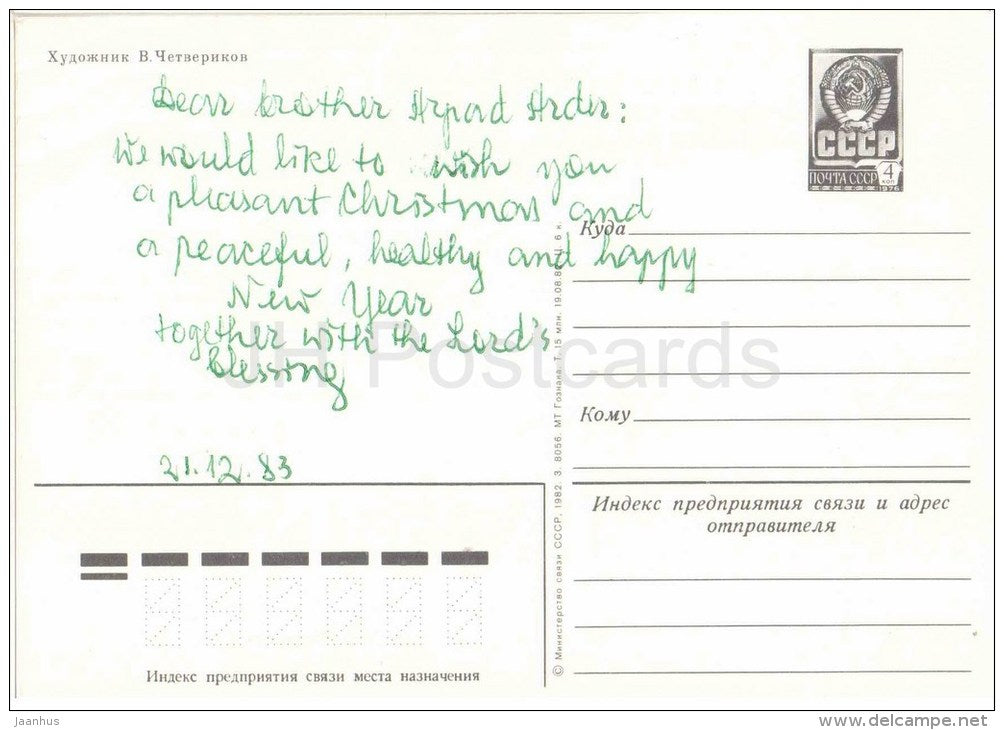 Художник В.Четвериков
Dear brother Arpad Arder:
We would like to wish you
a pleasant Christmas and
a peaceful, healthy and happy
New Year
together with the Lord's
Blessing
21.12.83
СССР
ПОЧТА СССР
4
КОП
1976
Куда
Кому
Индекс предприятия связи и адрес
отправителя
Индекс предприятия связи места назначения
© Министерство связи СССР, 1982. З. 8056. МТ Гознака. Т. 15 млн. 19.08.82. Ц. 6 к.
JH Postcards
jaanhus
www.delcampe.net